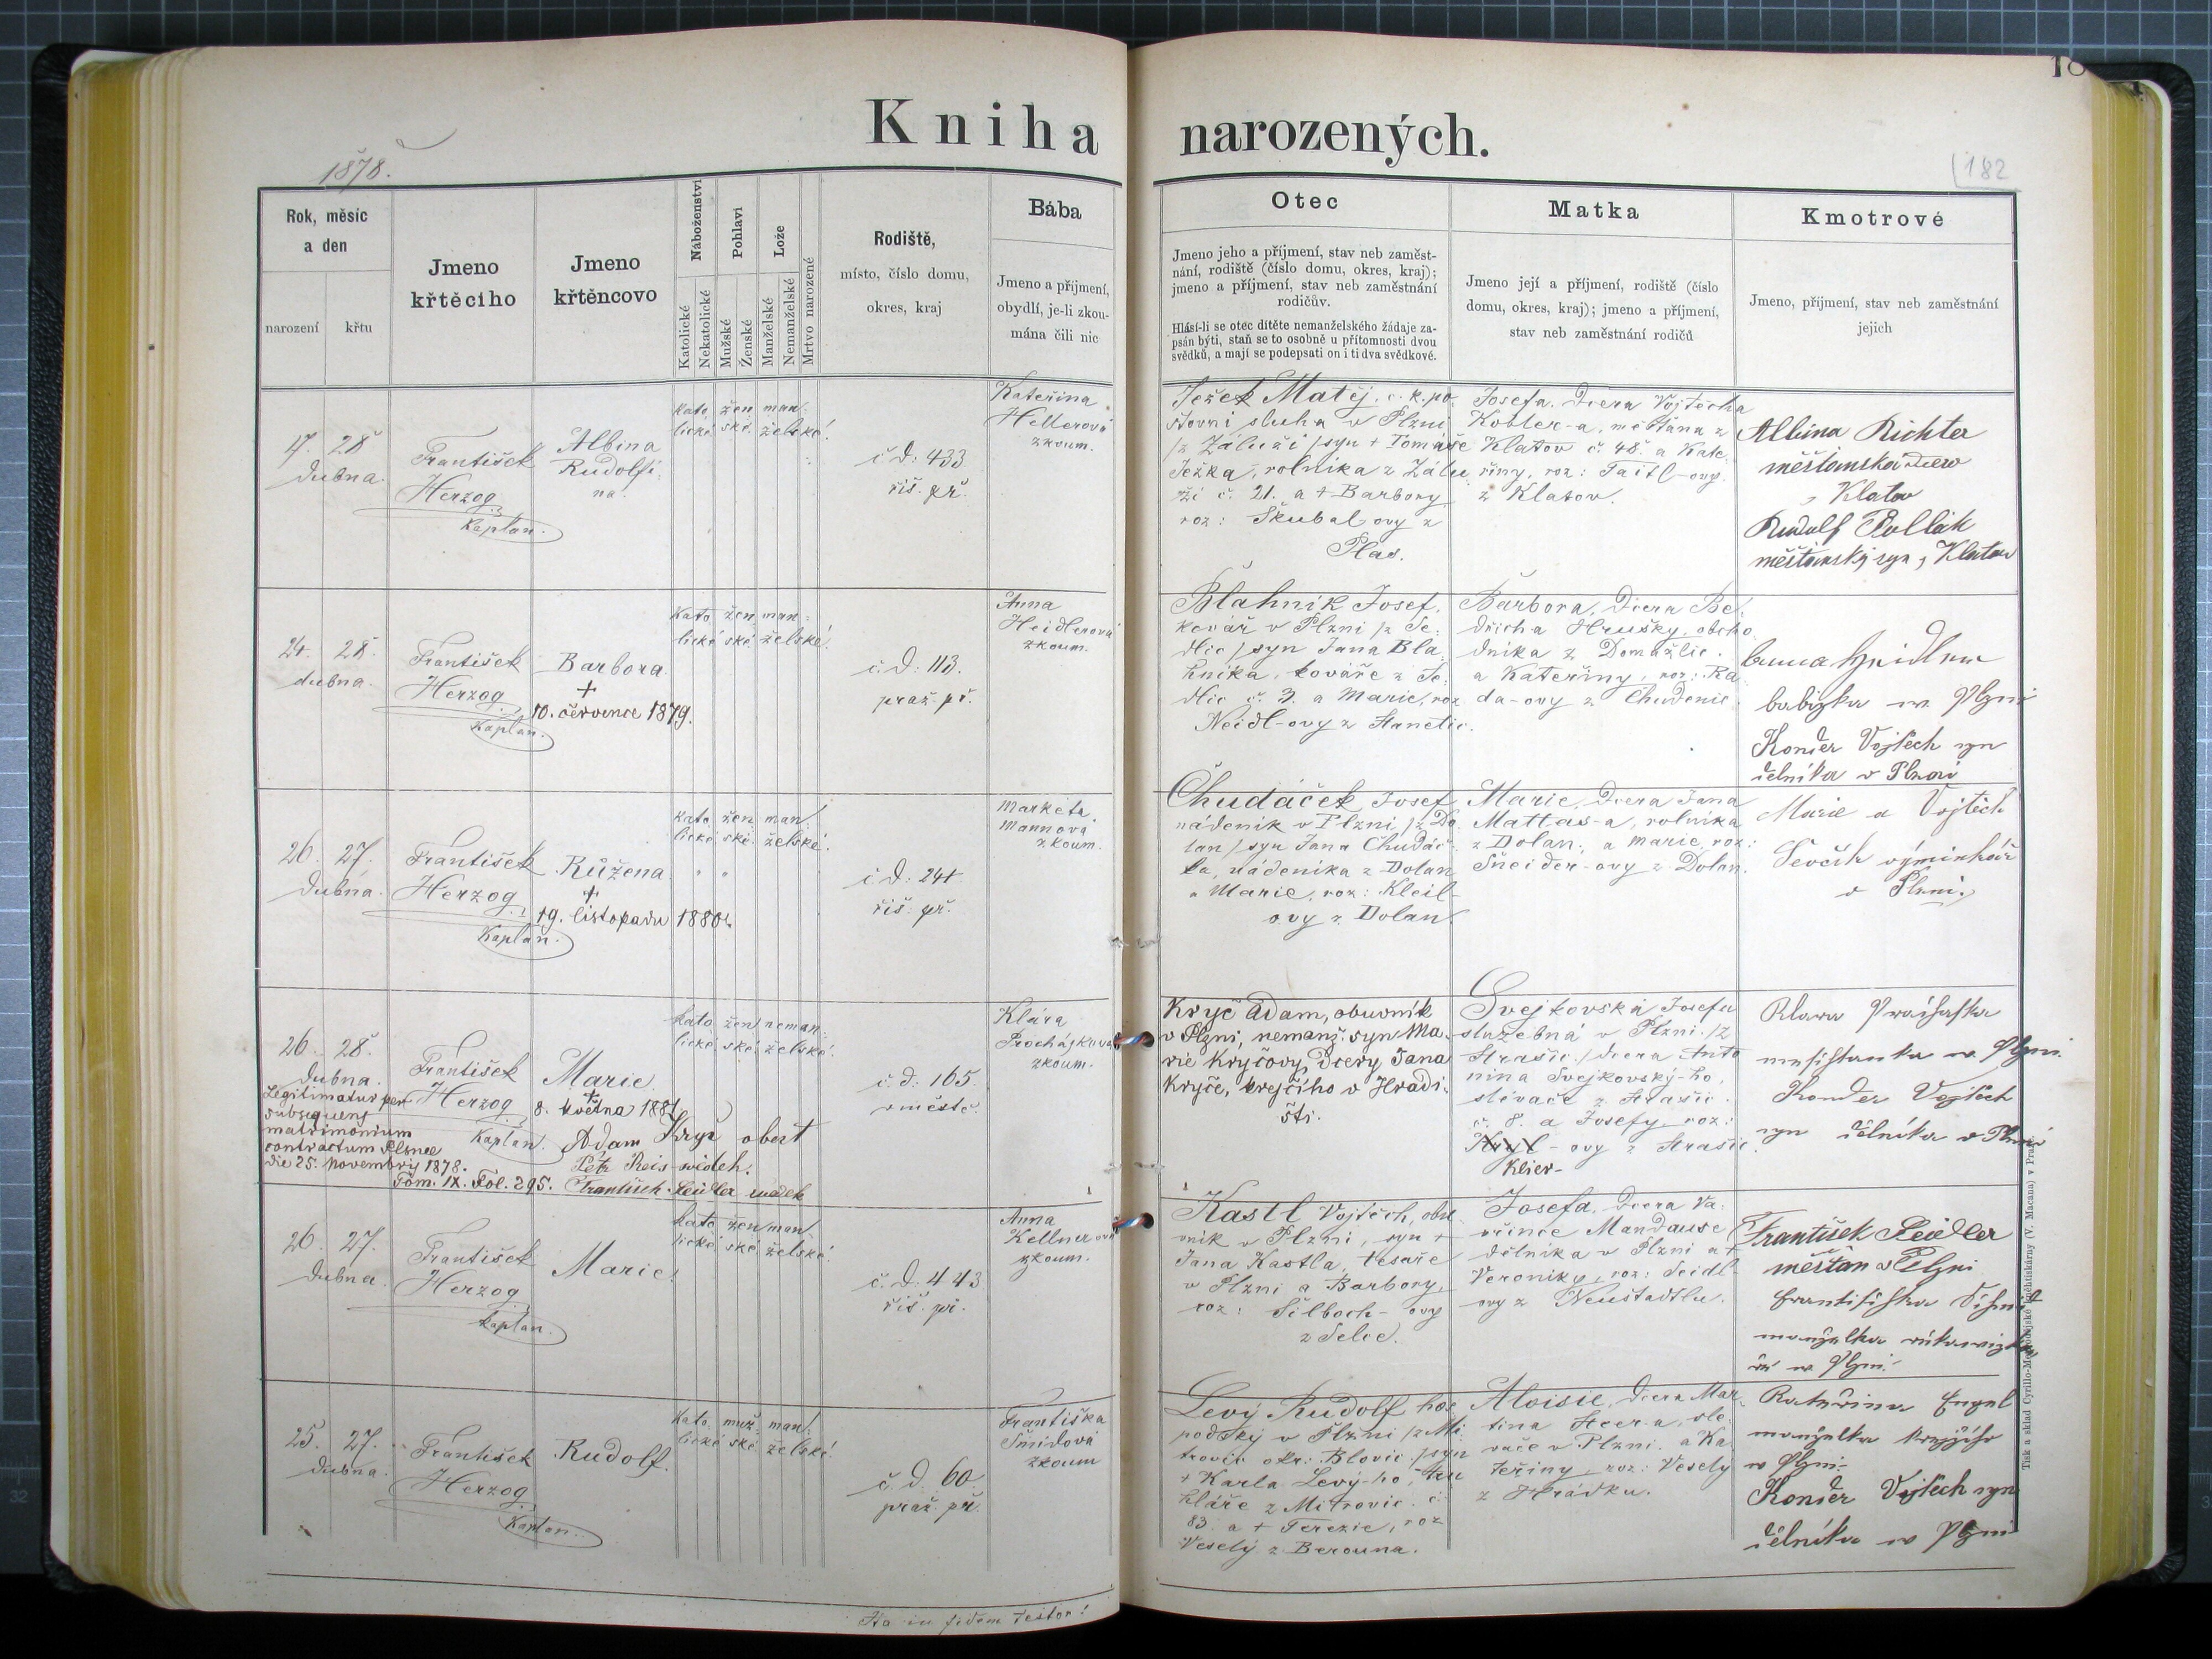 Kniha narozených.
1878.
182
Rok, měsíc
a den
narození
křtu
Jmeno
křtěcího
Jmeno
křtěncovo
Náboženství
Katolické
Nekatolické
Pohlaví
Mužské
Ženské
Lože
Manželské
Nemanželské
Mrtvo narozené
Rodiště,
místo, číslo domu,
okres, kraj
Bába
Jmeno a příjmení,
obydlí, je-li zkou-
mána čili nic
Otec
Jmeno jeho a příjmení, stav neb zaměst-
nání, rodiště (číslo domu, okres, kraj);
jmeno a příjmení, stav neb zaměstnání
rodičův.
Hlásí-li se otec dítěte nemanželského žádaje za-
psán býti, staň se to osobně u přítomnosti dvou
svědků, a mají se podepsati on i ti dva svědkové.
Matka
Jmeno její a příjmení, rodiště (číslo
domu, okres, kraj); jmeno a příjmení,
stav neb zaměstnání rodičů
Kmotrové
Jmeno, příjmení, stav neb zaměstnání
jejich
17. 28
dubna.
František
Herzog
kaplan.
Albina
Rudolfi
na.
kato žen man
lické ské želské.
č. d: 433
říš. př.
Kateřina
Hellerová
zkoum.
Ježek Matěj, c. k. po
štovní sluha v Plzni
/z Záluží/ syn + Tomáše
Ježka, rolníka z Zálu
ží č. 21. a + Barbory
roz: Škubal ovy z
Plas.
Josefa, dcera Vojtěcha
Kobler-a, měšťana z
Klatov č. 48. a Kate
řiny, roz: Taitl-ovy
z Klatov.
Albina Richter
měšťanská dcera
z Klatov
Rudolf Pollak
měšťanský syn z Klatov
24. 28.
dubna.
František
Herzog
kaplan.
Barbora
+
10. července 1879.
kato žen man
lické ské želské.
č. d: 113.
praž. př.
Anna
Heidlerová
zkoum.
Blahnik Josef,
kovář v Plzni /z Se
dlic/ syn Jana Bla
hníka, kováře z Se
dlic č. 7. a Marie, roz
Neidl-ovy z Hanetic.
Barbora, dcera Be
dřicha Hrušky, obcho
dníka z Domažlic
a Kateřiny, roz: Ra
da-ovy z Chudenic
Anna Heidler
babizka w Plzni
Konder Vojtěch syn
dělníka v Plzni
26. 27.
dubna.
František
Herzog
kaplan.
Růžena
+
19. listopadu 1880.
kato žen man
lické ské želské.
č. d: 241
říš. př.
Marketa
Mannova
zkoum.
Chudáček Josef
nádeník v Plzni /z Do
lan/ syn Jana Chudáč
ka, nádeníka z Dolan
a Marie, roz: Kleil-
ovy z Dolan.
Marie, dcera Jana
Mattas-a, rolníka
z Dolan, a Marie, roz:
Šneider-ovy z Dolan.
Marie a Vojtěch
Ševčík výminkář
v Plzni.
26. 28.
dubna.
Legitimatur per
subsequens
matrimonium
contractum Pilsnae
die 25. Novembris 1878.
Tom. IX. Fol. 295.
František
Herzog
kaplan.
Marie
+
8. května 1881
Adam Kryč
Petr Reis svědek.
František Seidler svadek
kato žen neman
lické ské želské.
č. d: 165.
v městě.
Klára
Procházková
zkoum.
Kryč Adam, obuvník
v Plzni, nemanž. syn Ma-
rie Kryčovy, dcery Jana
Kryče, krejčího v Hradi-
šti.
Švejkovská Josefa
služebná v Plzni /z
Strašic/ dcera Anto
nína Švejkovský-ho,
slévače z Strašic
č. 8. a Josefy, roz:
Kryl-ovy z Strašic.
Klier-
Klara Prochaska
Plzni
Konder Vojtěch
syn dělníka v Plzni
26. 27.
dubna.
František
Herzog
kaplan.
Marie
kato žen man
lické ské želské.
č. d: 443
říš. př.
Anna
Kellnerová
zkoum.
Kastl Vojtěch, obu
vník v Plzni, syn +
Jana Kastla, tesaře
v Plzni a Barbory,
roz: Silbach-ovy
z Selce.
Josefa, dcera Va
vřince Mandause
dělníka v Plzni a +
Veroniky, roz: Seidl
ovy z Neustadtlu.
František Seidler
měšťan v Plzni
Frantischka
manželka
w Plzni
25. 27.
dubna.
František
Herzog
kaplan.
Rudolf.
kato muž man
lické ské želské.
č. d. 60
praž. př.
Františka
Šmídová
zkoum
Levý Rudolf hos
podský v Plzni /z Mi
trovic okr: Blovic/ syn
+ Karla Levý-ho, tru
hláře z Mitrovic č.
83. a + Terezie, roz
Veselý z Berouna.
Aloisie, dcera Mar
tina Steer-a, slé
vače v Plzni a Ka
teřiny, roz: Veselý
z Hrádku.
Kateřina Engel
manželka krejčího
w Plzni
Konder Vojtěch syn
dělníka w Plzni
Ita in fidem testor!
Tisk a sklad Cyrillo-Methodějské knihtiskárny (V. Macana) v Praze